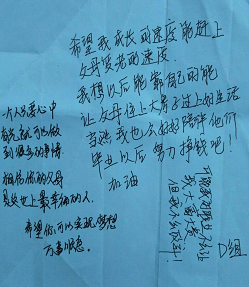 希望我成长的速度能赶上
父母变老的速度.
我想以后能靠自己的能
让父母住上大房子过上好生活
当然我也会好好陪伴他们
毕业以后努力挣钱吧!
加油
一个人只要心中
首先就可以做
到很多的事情.
相信你的父母
是世上最幸福的人.
希望你可以实现梦想
万事顺意.
D组